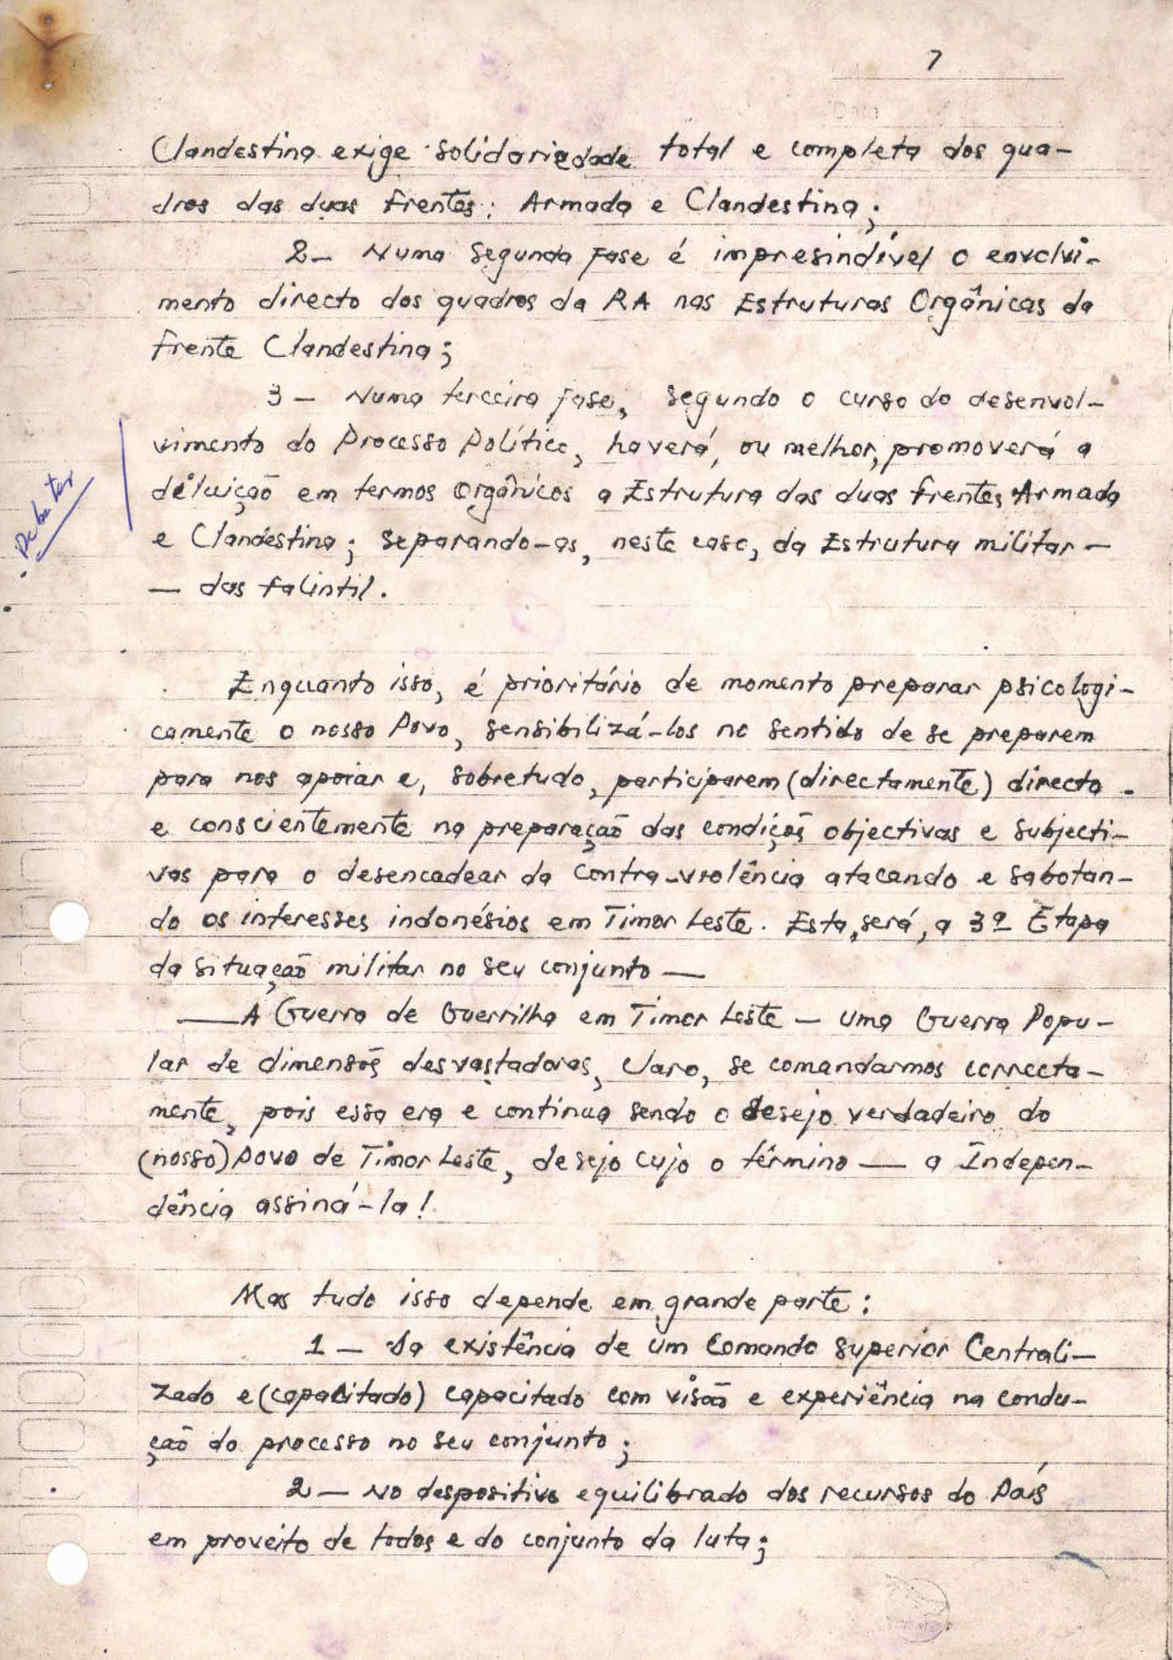 7
Clandestina exige solidariedade total e completa dos qua-
dros das duas frentes: Armada e Clandestina;
2- Numa Segunda fase é impresindível o envolvi-
mento directo dos quadros da RA nas Estruturas Orgânicas da
frente Clandestina;
3 - Numa terceira fase, segundo o curso do desenvol-
vimento do Processo Político, haverá, ou melhor, promoverá a
diluição em termos orgânicos a Estrutura das duas frentes Armada
e Clandestina; separando-as, neste caso, da Estrutura militar -
- das falintil.
Debater
Enquanto isso, é prioritário de momento preparar psicologi-
camente o nosso Povo, sensibilizá-los no sentido de se preparem
para nos apoiar e, sobretudo, participarem (directamente) directa -
e conscientemente na preparação das condições objectivas e subjecti-
vas para o desencadear da contra-violência atacando e sabotan-
do os interesses indonésios em Timor Leste. Esta, será, a 3ª Etapa
da situação militar no seu conjunto —
— A Guerra de Guerrilha em Timor Leste - uma Guerra Popu-
lar de dimensões desvastadoras, claro, se comandarmos correcta-
mente, pois essa era e continua sendo o desejo verdadeiro do
(nosso) Povo de Timor Leste, desejo cujo o término — a Indepen-
dência assiná-la!
Mas tudo isso depende em grande parte:
1 - Da existência de um Comando superior Centrali-
zado e (capacitado) capacitado com visão e experiência na condu-
ção do processo no seu conjunto;
2 - No despositivo equilibrado dos recursos do País
em proveito de todos e do conjunto da luta;